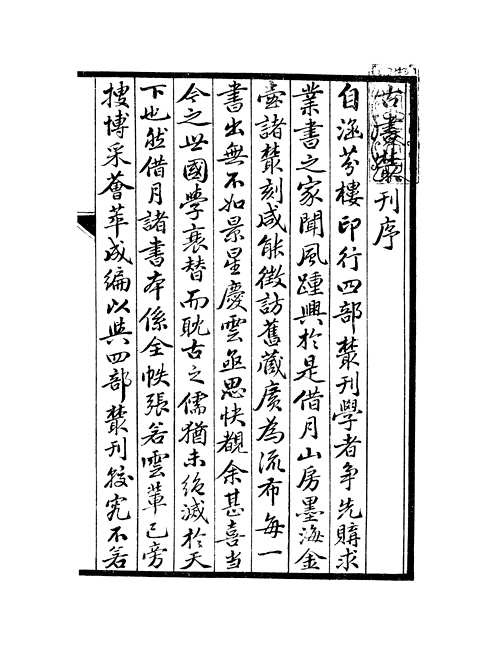 古書叢刊序
自涵芬樓印行四部叢刊學者爭先購求
業書之家聞風踵興於是借月山房墨海金
壺諸叢刻咸能徵訪舊藏廣為流布每一
書出無不如景星慶雲亟思快覩余甚喜當
今之世國學衰替而耽古之儒猶未絕滅於天
下也然借月諸書本係全帙張若雲輩已旁
搜博采薈萃成編以與四部叢刊較究不若